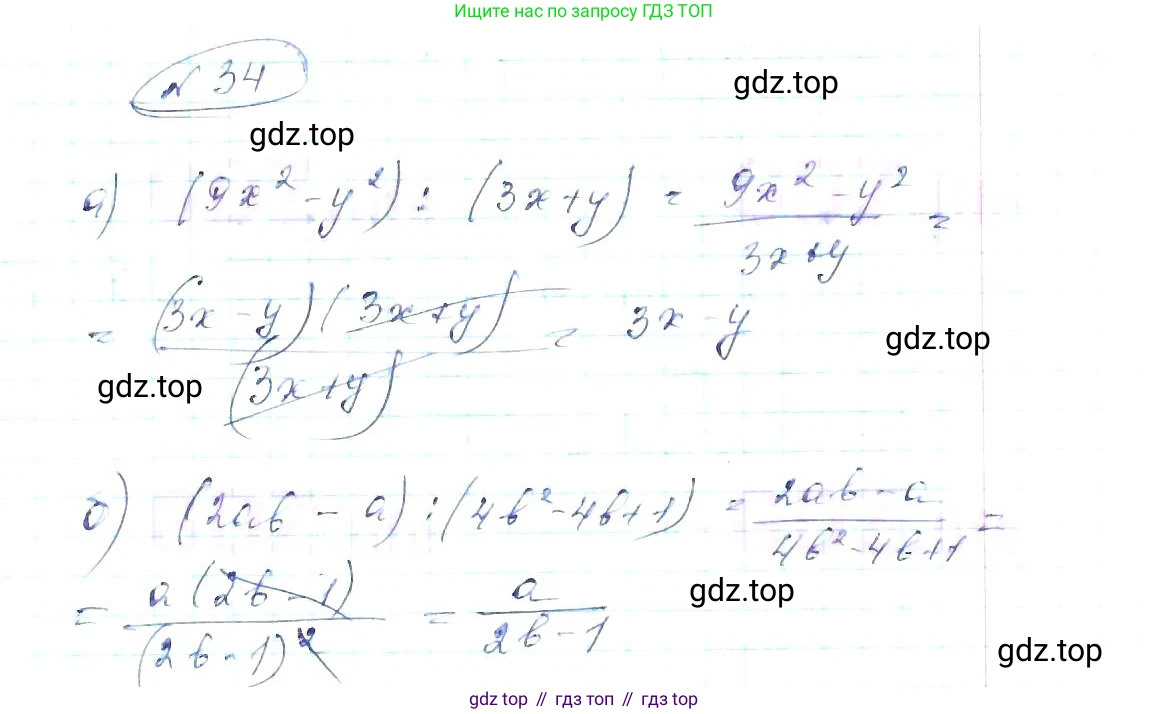 Ищите нас по запросу ГДЗ ТОП
№ 34
gdz.top
gdz.top
а) (9x² - y²) : (3x + y) = \frac{9x² - y²}{3x + y} =
= \frac{(3x - y)(3x + y)}{(3x + y)} = 3x - y
gdz.top
gdz.top
б) (2ab - a) : (4b² - 4b + 1) = \frac{2ab - a}{4b² - 4b + 1} =
= \frac{a(2b - 1)}{(2b - 1)²} = \frac{a}{2b - 1}
gdz.top
gdz.top
gdz top // гдз топ // гдз top